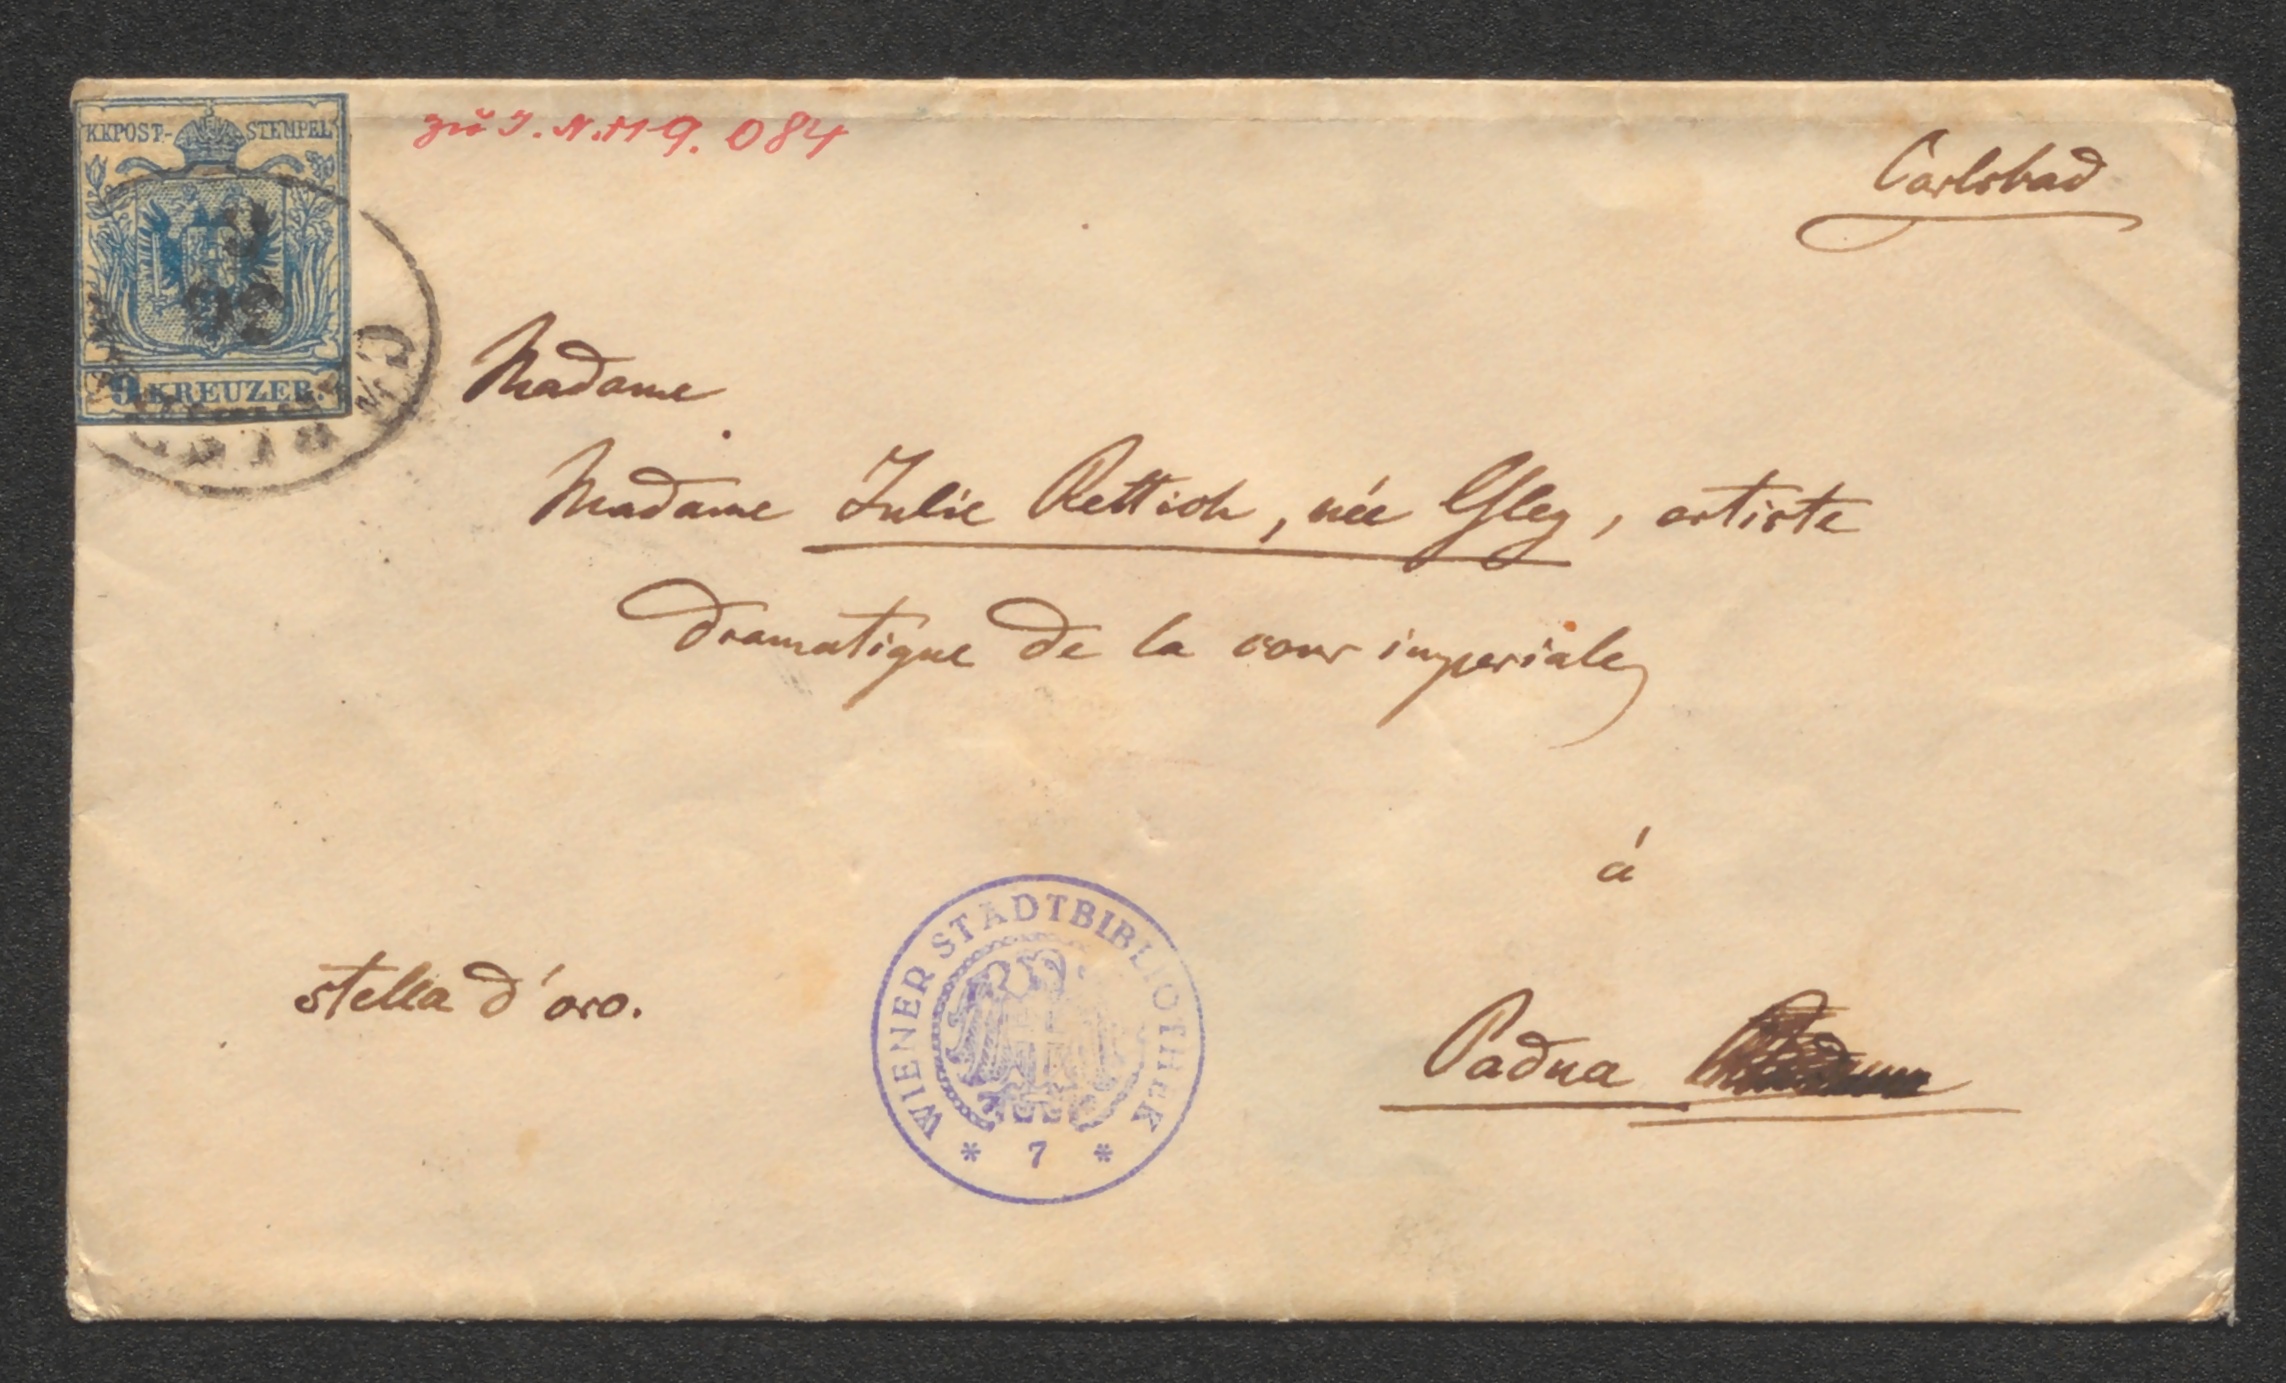 KKPOST-STEMPEL
9 KREUZER.
zu I.N.119.084
Carlsbad
Madame
Madame Julie Rettich, née Gley, artiste
dramatique de la cour imperiale
á
stella d'oro.
Padua
WIENER STADTBIBLIOTHEK
* 7 *